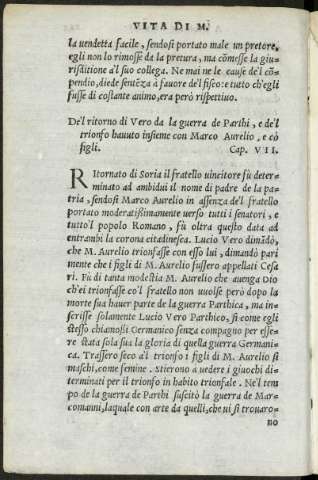 VITA DI M.
la uendetta facile, sendosi portato male un pretore,
egli non lo rimosse da la pretura, ma cõmesse la giu-
risditione a'l suo collega. Ne mai ne le cause de'l cõ-
pendio, diede sentẽza à fauore de'l fisco: e tutto ch'egli
fusse di costante animo, era però rispettiuo.
De'l ritorno di Vero da la guerra de Parthi, e de'l
trionfo hauuto insieme con Marco Aurelio, e cõ
figli. Cap. VII.
Ritornato di Soria il fratello uincitore fù deter-
minato ad ambidui il nome di padre de la pa-
tria, sendosi Marco Aurelio in assenza de'l fratello
portato moderatißimamente uerso tutti i senatori, e
tutto'l popolo Romano, fù oltra questo data ad
entrambi la corona citadinesca. Lucio Vero dimãdò,
che M. Aurelio trionfasse con esso lui, dimandò pari
mente che i figli di M. Aurelio fussero appellati Cesa
ri. Fù di tanta modestia M. Aurelio che auenga Dio
ch'ei trionfasse co'l fratello non uuolse però dopo la
morte sua hauer parte de la guerra Parthica, ma in-
scrisse solamente Lucio Vero Parthico, si come egli
stesso chiamossi Germanico senza compagno per esse-
re stata sola sua la gloria di quella guerra Germani-
ca. Trassero seco a'l trionfo i figli di M. Aurelio sì
maschi, come femine. Stierono a uedere i giuochi di-
terminati per il trionfo in habito trionfale. Ne'l tem
po de la guerra de Parthi suscitò la guerra de Mar-
comanni, laquale con arte da quelli, che ui si trouaro-
no